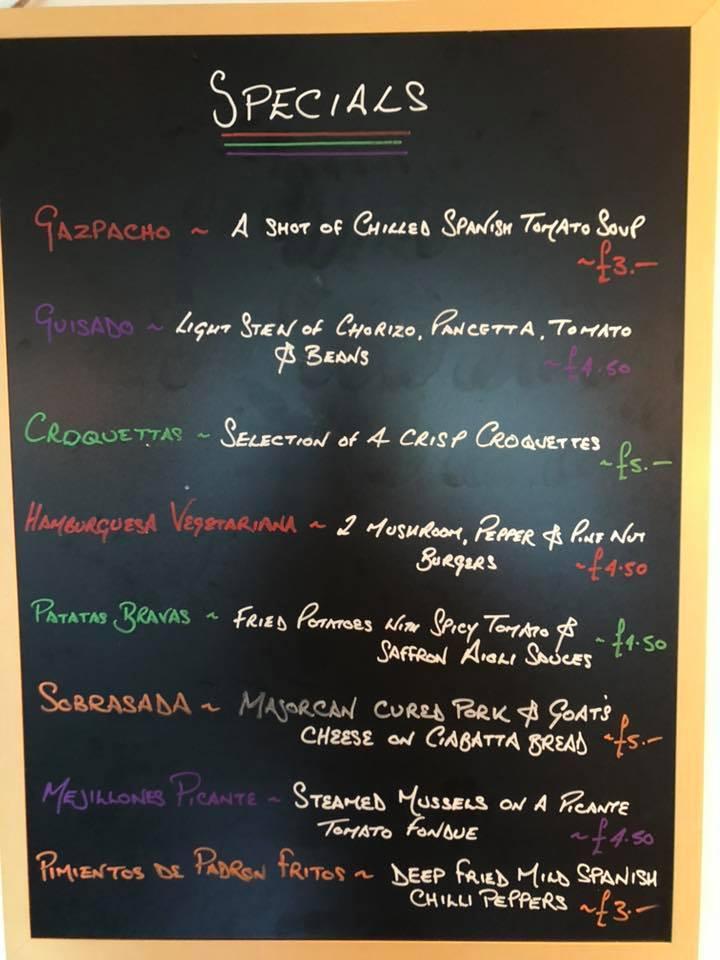 SPECIALS
GAZPACHO ~ A SHOT OF CHILLED SPANISH TOMATO SOUP
~£3.—
GUISADO ~ LIGHT STEW OF CHORIZO, PANCETTA, TOMATO
& BEANS ~£4.50
CROQUETTAS ~ SELECTION OF 4 CRISP CROQUETTES
~£5.—
HAMBURGUESA VEGETARIANA ~ 2 MUSHROOM, PEPPER & PINE NUT
BURGERS ~£4.50
PATATAS BRAVAS ~ FRIED POTATOES WITH SPICY TOMATO &
SAFFRON AIOLI SAUCES ~£4.50
SOBRASADA ~ MAJORCAN CURED PORK & GOAT'S
CHEESE ON CIABATTA BREAD ~£5.—
MEJILLONES PICANTE ~ STEAMED MUSSELS ON A PICANTE
TOMATO FONDUE ~£4.50
PIMIENTOS DE PADRON FRITOS ~ DEEP FRIED MILD SPANISH
CHILLI PEPPERS ~£3.—